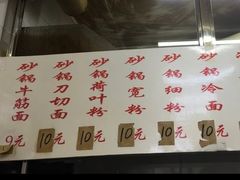 砂锅牛筋面
9元
砂锅刀切面
10元
砂锅荷叶粉
10元
砂锅宽粉
10元
砂锅细粉
10元
砂锅冷面
10元